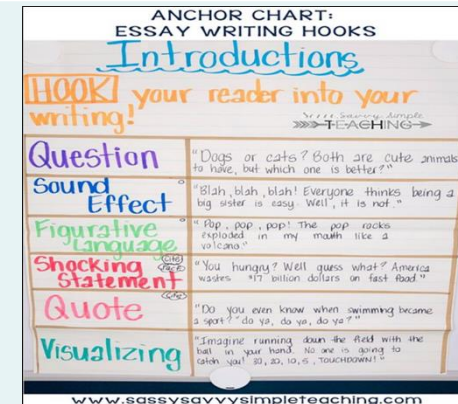 ANCHOR CHART:
ESSAY WRITING HOOKS
Introductions
HOOK your reader into your
writing!
Sassy Savvy Simple
TEACHING
Question
"Dogs or cats? Both are cute animals
to have, but which one is better?"
Sound
Effect
"Blah, blah, blah! Everyone thinks being a
big sister is easy. Well, it is not."
Figurative
Language
"Pop, pop, pop! The pop rocks
exploded in my mouth like a
volcano."
Shocking
Statement
(cite)
"You hungry? Well guess what? America
wastes $17 billion dollars on fast food."
Quote
(cite)
"Do you even know when swimming became
a sport?" do ya, do ya, do ya?"
Visualizing
"Imagine running down the field with the
ball in your hand. No one is going to
catch you! 30, 20, 10, 5, TOUCHDOWN!"
www.sassysavvysimpleteaching.com